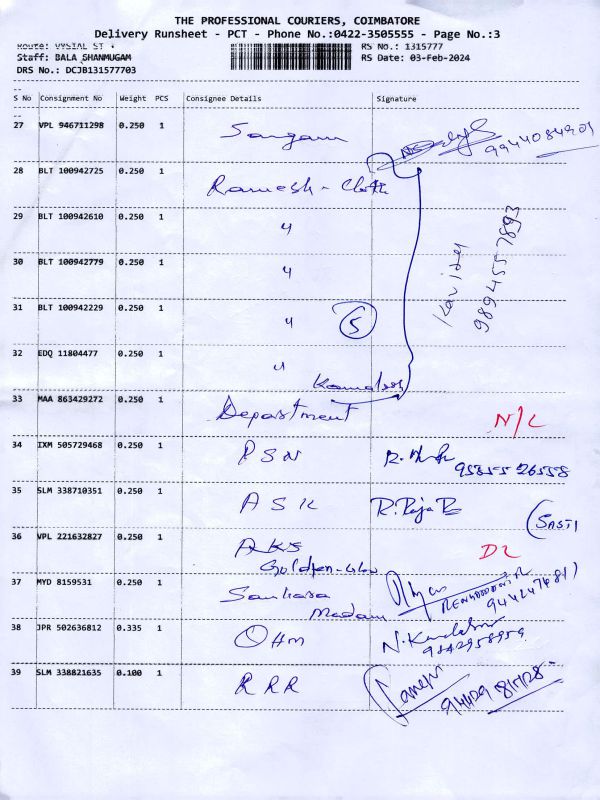 THE PROFESSIONAL COURIERS, COIMBATORE
Delivery Runsheet - PCT - Phone No.:0422-3505555 - Page No.:3
Route: VYSIAL ST
RS No.: 1315777
Staff: BALA SHANMUGAM
RS Date: 03-Feb-2024
DRS No.: DCJB131577703
S No Consignment No Weight PCS Consignee Details Signature
27 VPL 946711298 0.250 1 Sangam
28 BLT 100942725 0.250 1 Ramesh - Cloth
29 BLT 100942610 0.250 1 "
30 BLT 100942779 0.250 1 "
31 BLT 100942229 0.250 1 " 5
32 EDQ 11804477 0.250 1 "
Kavitha
9894557893
33 MAA 863429272 0.250 1 Department N/C
34 IXM 505729468 0.250 1 PSN 95855 26558
35 SLM 338710351 0.250 1 ASK R. Raja
(SASTI
36 VPL 221632827 0.250 1 AKS D2
Golden
37 MYD 8159531 0.250 1 Sankara
Madam
38 JPR 502636812 0.335 1 OHM 9842958959
39 SLM 338821635 0.100 1 RRR